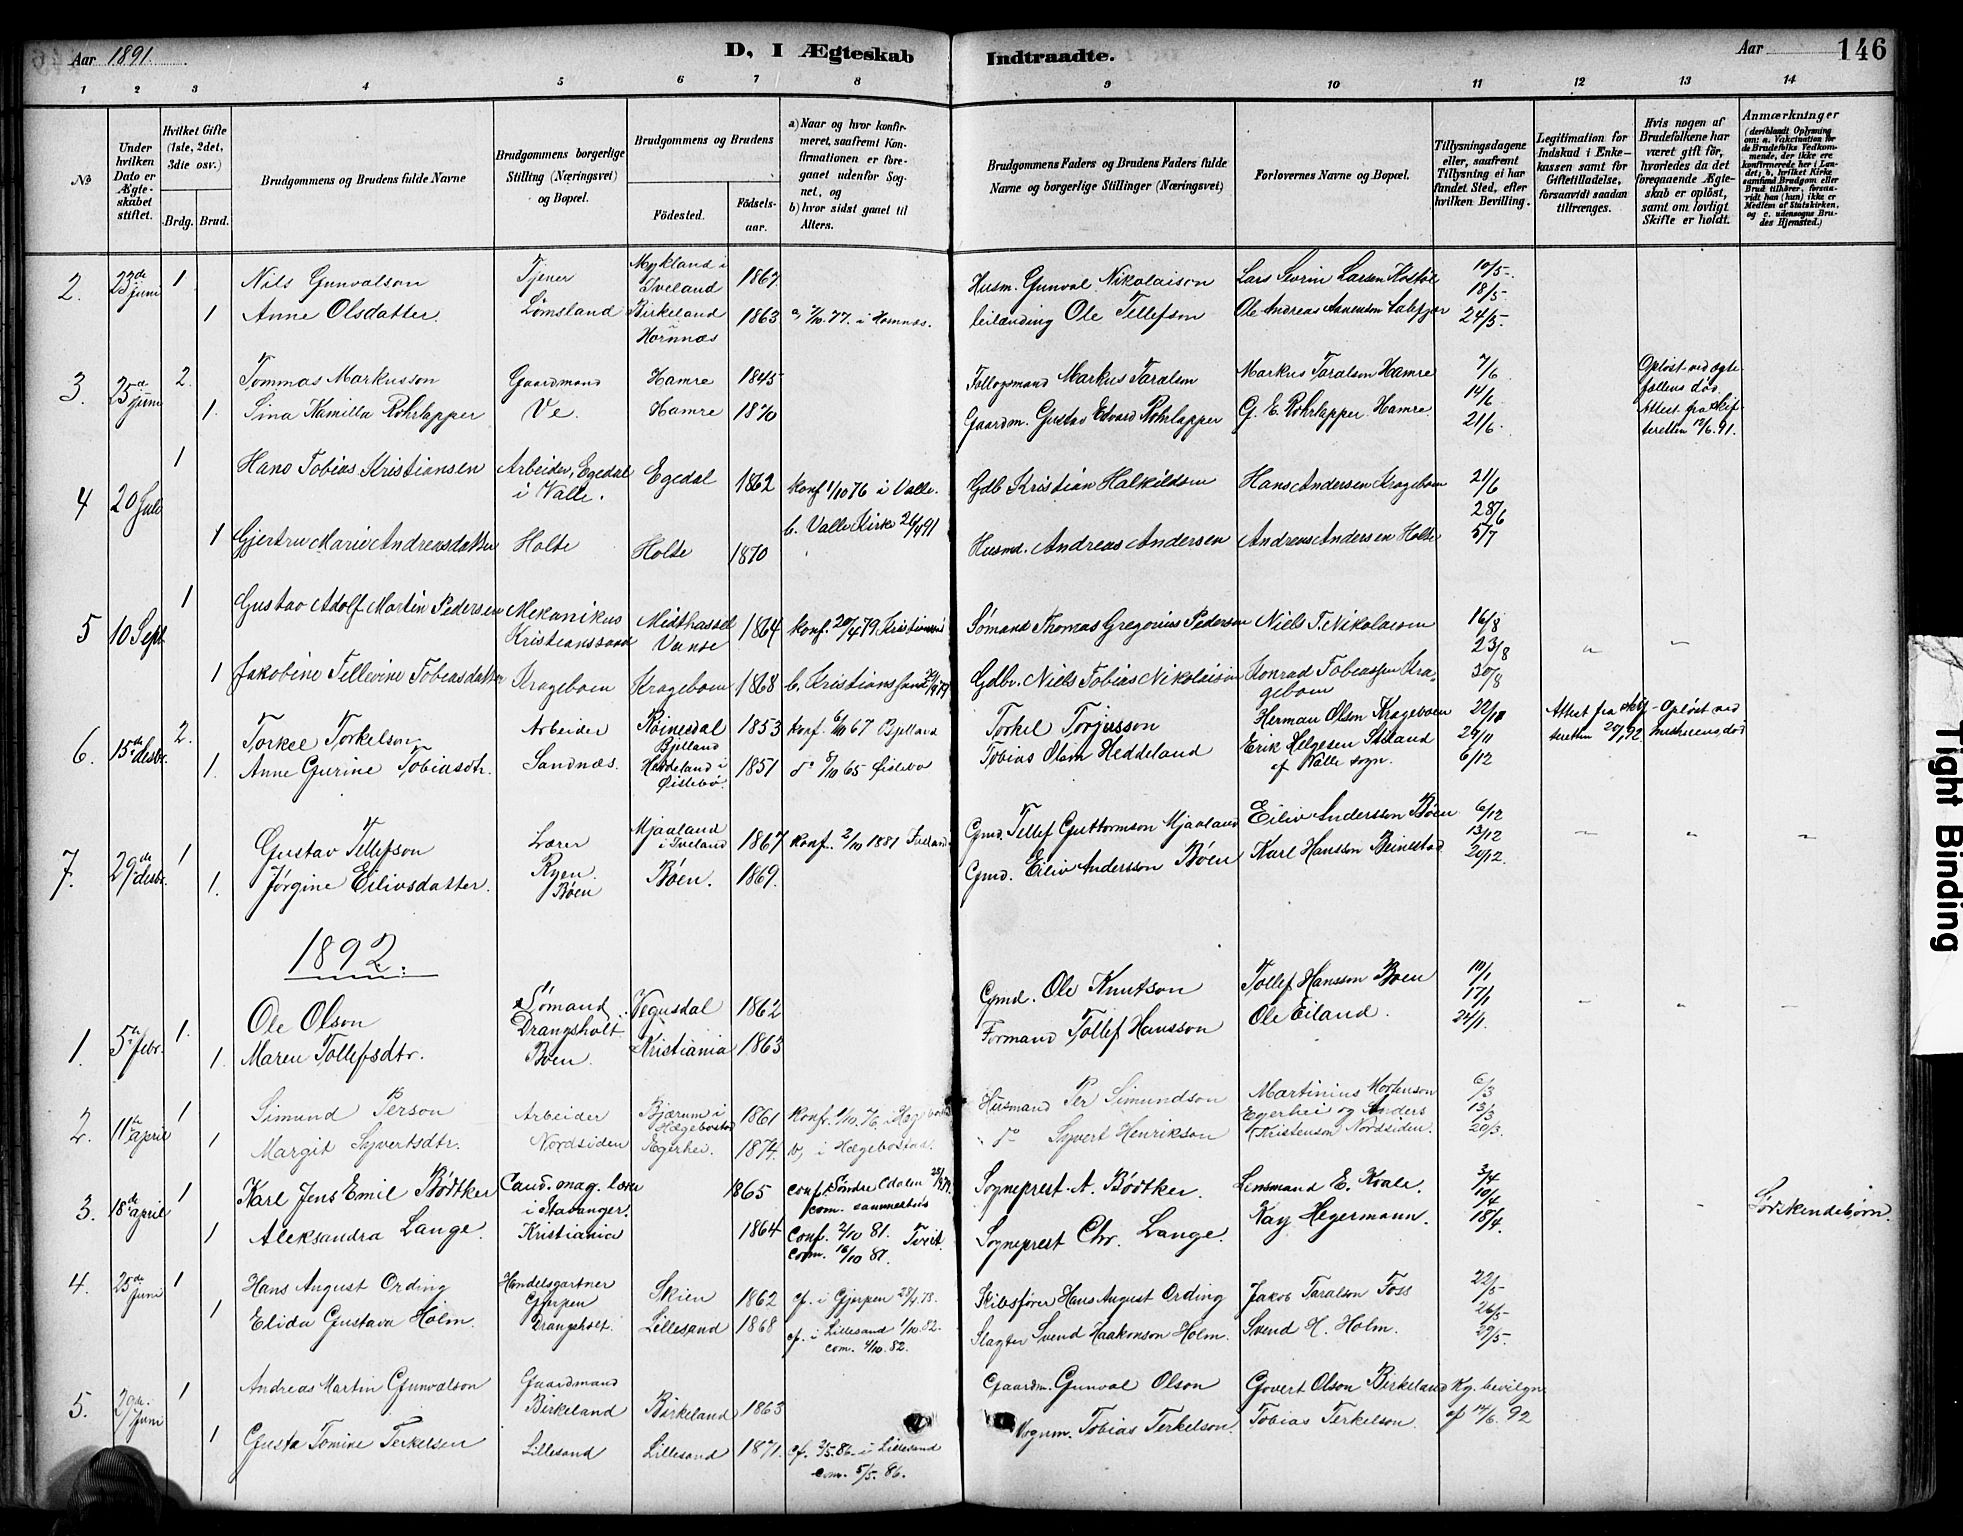 Aar 1891.
D, I Ægteskab Indtraadte.
Aar
146
1 2 3 4 5 6 7 8 9 10 11 12 13 14
№
Under hvilken Dato er Ægteskabet stiftet.
Hvilket Gifte (1ste, 2det, 3die osv.)
Brdg. Brud.
Brudgommens og Brudens fulde Navne
Brudgommens borgerlige Stilling (Næringsvei) og Bopæl.
Brudgommens og Brudens
Fødested.
Fødselsaar.
a) Naar og hvor konfirmeret, saafremt Konfirmationen er foregaaet udenfor Sognet, og
b) hvor sidst gaaet til Alters.
Brudgommens Faders og Brudens Faders fulde Navne og borgerlige Stillinger (Næringsvei)
Forlovernes Navne og Bopæl.
Tillysningsdagene eller, saafremt Tillysning ei har fundet Sted, efter hvilken Bevilling.
Legitimation for Indskud i Enkekassen samt for Giftetilladelse, forsaavidt saadan tiltrænges.
Hvis nogen af Brudefolkene har været gift før, hvorledes da det foregaaende Ægteskab er opløst, samt om lovligt Skifte er holdt.
Anmærkninger
(deriblandt Oplysning om: a. Vakcination for de Brudefolks Vedkommende, der ikke ere konfirmerede her i Landet; b. hvilket Kirkesamfund Brudgom eller Brud tilhører, forsaavidt han (hun) ikke er Medlem af Statskirken, og c. udensogns Brudes Hjemsted.)
2. 23de juni 1 Nils Gunvalson Tjener Mykland i Iveland 1867 Husm. Gunval Nikolaison Lars Sevrin Larsen Kostøl 10/5
1 Anne Olsdatter. Lømsland Birkeland Hornnæs 1863 a, 7/10.77. i Hornnæs. leilænding Ole Tellefson Ole Andreas Aanenson 18/5 24/5
3. 25de juni 2. Tommas Markusson Gaardmand Hamre 1845 Markus Taralsen Markus Taralson Hamre 7/6 Opløst ved ægtefællens død
1. Sina Kamilla Rohrlapper Ve. Hamre 1870 Gaardm. Gustav Edvard Rohrlapper G. E. Rohrlapper Hamre 14/6 21/6 Attest fra skifteretten 12/6.91.
4 20 Juli 1 Hans Tobias Kristiansen Arbeider, Egedal i Valle. Egedal 1862 konf. 1/10 76 i Valle. Gdb Kristian Halkildsen Hans Andersen Krageboen 21/6
b. Valle Kirke 26/4 91 28/6
1 Gjertru Marie Andreasdatter Holte Holte 1870 Husmd. Andreas Andersen Andreas Andersen Holte 5/7
5 10 Sept 1 Gustav Adolf Martin Pedersen Mekanikus Kristianssand Midthassel Vanse 1864 konf. 20/4 79 Sømand Thomas Gregorius Pederson Niels T. Nikolaisen 16/8
23/8 " "
1 Jakobine Tellevine Tobiasdatter Krageboen Krageboen 1868 b. Kristianssand Gdbr. Niels Tobias Nikolaison Konrad Tobiassen Krageboen 30/8
6. 15de desbr. 2. Torkel Torkelson Arbeider Røinesdal Bjelland 1853 konf. 6/10 67 Bjelland Torkel Torjusson Herman Olson Krageboen 22/11 Attest fra skifteretten Opløst ved hustruens død
1. Anne Gurine Tobiasdtr. Sandnæs. Heddeland i Øislebø. 1851 do 8/10 65 Øislebø Tobias Olsen Heddeland Erik Helgesen Stiland af Valle sogn. 29/11 6/12
7. 29de desbr. 1 Gustav Tellefson Lærer Ryen. Mjaaland i Iveland 1867 konf. 2/10 1881 Iveland Gmd. Tellef Guttormson Mjaaland Eiliv Andersson Bøen 6/12
1. Jørgine Eilivsdatter. Bøen Bøen. 1869. Gmd. Eiliv Andersson Bøen Karl Hansson Beinestad 13/12 20/12. " " "
1892.
1. 5te febr. 1. Ole Olson Sømand Drangsholt. Vegusdal 1862 Gmd. Ole Knutson Tollef Hansson Boen 10/1
1. Maren Tollefsdtr. Boen. Kristiania 1863 Formand Tollef Hansson Ole Eiland. 17/1 24/1. " " "
2. 11te april 1 Simund Person Arbeider Bjærum i Hægebostad 1861 konf. 1/10 76 i Hægebostad Husmand Per Simundson Martinius Mortenson Egerhei og Anders 6/3
1 Margit Syvertsdtr. Nordsiden Egerhei. 1874. b, i Hægebostad. " do Syvert Henrikson Kristenson Nordsiden. 13/3 20/3.
3. 18de april 1 Karl Jens Emil Bødtker Cand. mag. lærer i Stavanger. 1865 conf. Søndre Odalen com. sammesteds Sogneprest A. Bødtker. Lensmand E. Kvale. 3/4 10/4 Søskendebørn.
1 Aleksandra Lange. Kristiania 1864 Conf. 2/10 81. Tveit. com. 16/10 81. Sogneprest Chr. Lange. Kay Hegermann. 18/4
4. 25de Juni 1 Hans August Ording Handelsgartner Gjerpen Skien 1862 cf. i Gjerpen Skibsfører Hans August Ording Jakob Taralson Foss 22/5
1 Elida Gustava Holm. Drangsholt. Lillesand 1868 cf. i Lillesand 1/10.82. com. 4/10.82. Slagter Svend Haakonson Holm. Svend H. Holm. 26/5 29/5
5. 29de. Juni 1 Andreas Martin Gunvalson Gaardmand Birkeland Birkeland 1863 Gaardm. Gunval Olson Govert Olson Birkeland Kg. bevilgn.
1 Gusta Tomine Terkelsen Lillesand Lillesand 1871. cf. 2/5.86. i Lillesand com. 5/5.86. Vognm. Tobias Terkelson. Tobias Terkelson. af 14/6. 92
Tight Binding